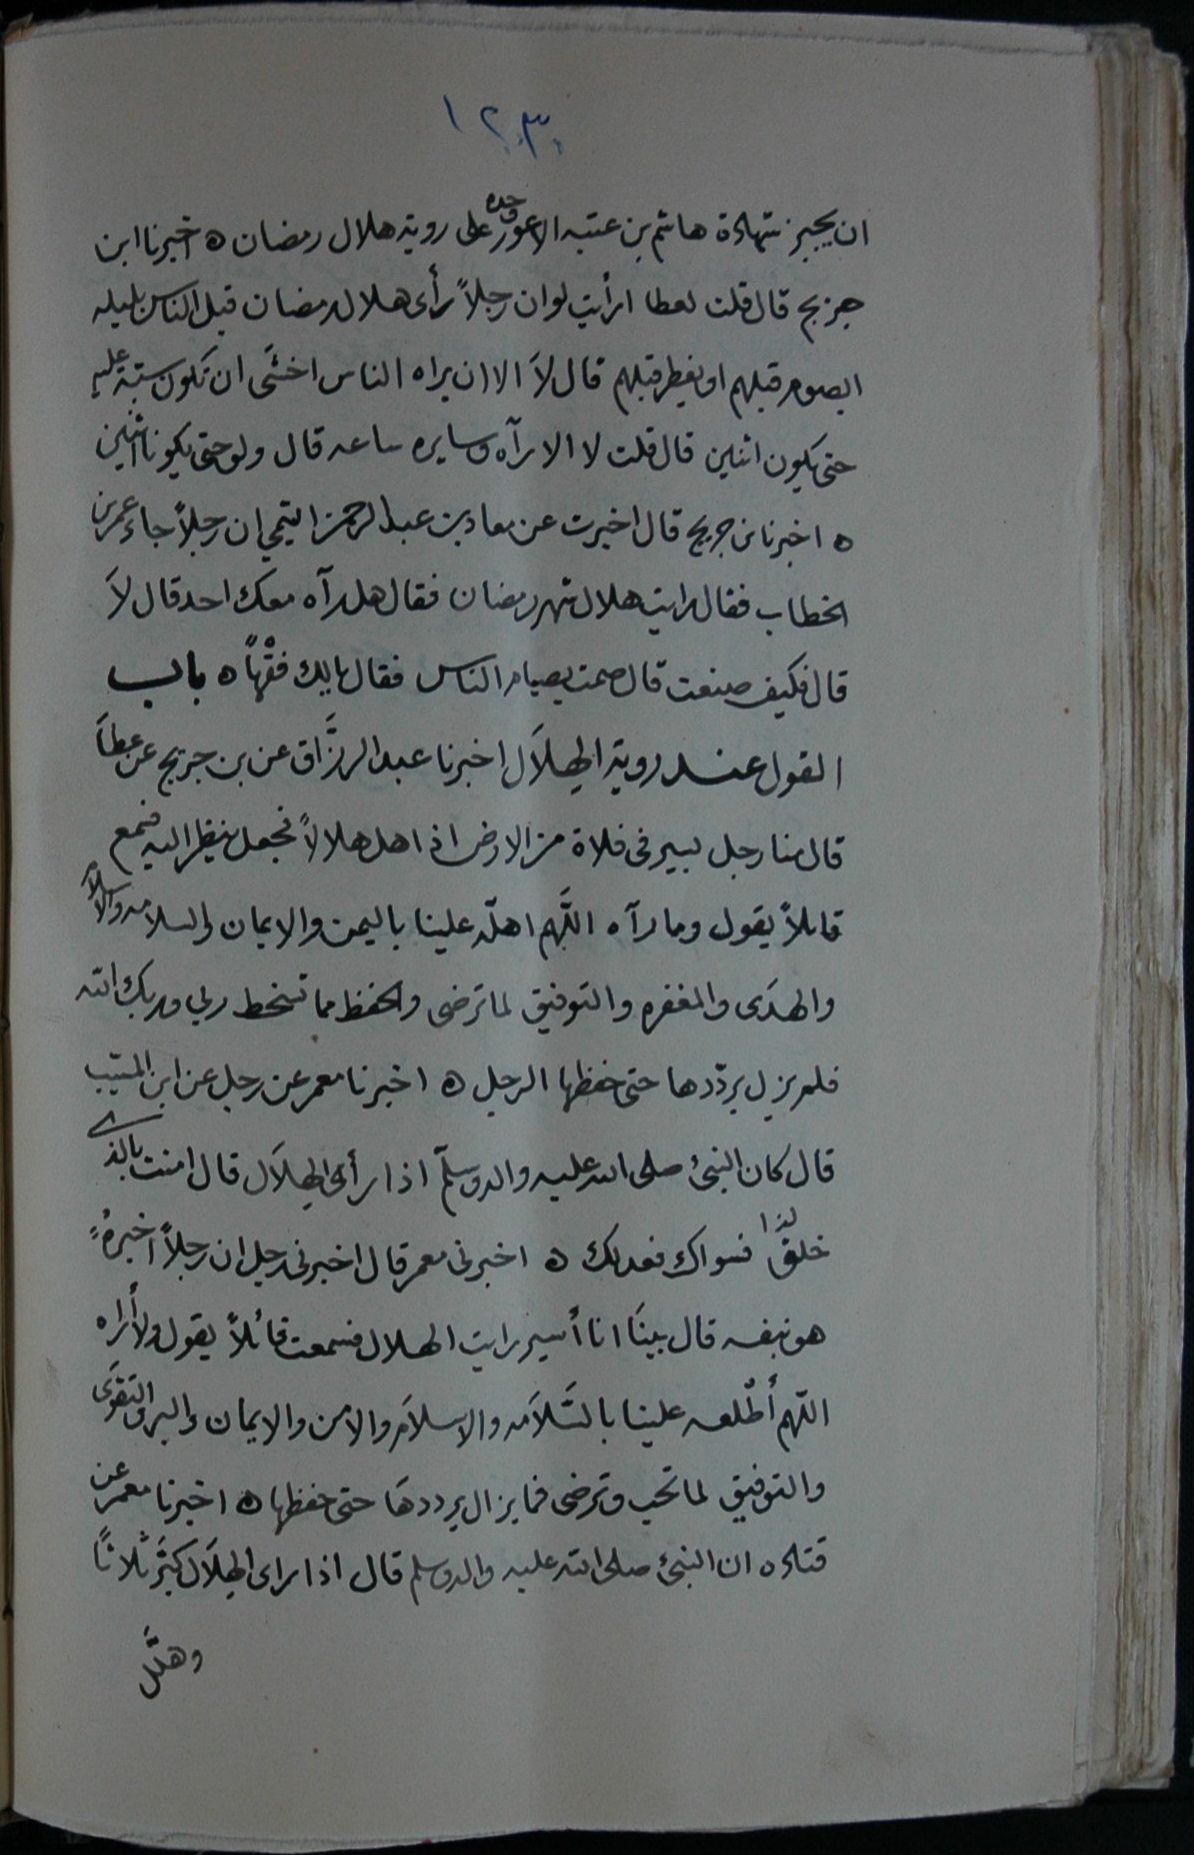 ١٢٠٣٠
ان يجيز شهادة هاشم بن عتبه الاعور وحده على روية هلال رمضان ه اخبرنا ابن
جريج قال قلت لعطا ارأيت لو ان رجلاً رأى هلال رمضان قبل الناس بليله
ايصوم قبلهم او يفطر قبلهم قال لاَ الا ان يراه الناس اخشَى ان تكون شبه عليه
حتى يكون اثنين قال قلت لا الا رآه وسايره ساعه قال ولو حتى يكونا اثنين
ه اخبرنا بن جريج قال اخبرت عن معاد بن عبد الرحمن التيمي ان رجلاً جاء عمر بن
الخطاب فقال رايت هلال شهر رمضان فقال هل رآه معك احد قال لاَ
قال فكيف صنعت قال صمت بصيام الناس فقال يا لك فقْهاً ه باب
القول عند روية الهِلاَل اخبرنا عبد الرزَّاق عن بن جريج عن عطاَ
قال منا رجل يسير فى فلاة من الارض اذ اهل هلالاً فجعل ينظر اليه فسمع
قايلاً يقول وما رآه اللَّهم اهلّه علينا باليمن والايمان والسلامه والاسلاَم
والهدَى والمغفره والتوفيق لما ترضى والحفظ مما تسخط ربي وربك الله
فلم يزل يردّدها حتى حفظها الرجل ه اخبرنا معمر عن رجل عن ابن المسَيّب
قال كان النبيُ صلى الله عليه واله وسلّم اذا رأى الهِلاَل قال امنت بالذى
خلقك فسواك فعدلك ه اخبرنى معمر قال اخبرنى رجل ان رجلاً اخبرهُ
هو نفسه قال بينَا انا أسير رايت الهلال فسمعت قائلاً يقول ولا أراه
اللّهم أطْلعه علينا بالسَّلاَمه والاسلاَم والامن والايمان والبر والتقوَى
والتوفيق لما تحب وترضى فما يزال يرددهَا حتى حفظها ه اخبرنا معمر عن
قتاده ان النبيُ صلى الله عليه واله وسلم قال اذا راى الهِلاَل كبَّر ثلاثاً
وهلَّل